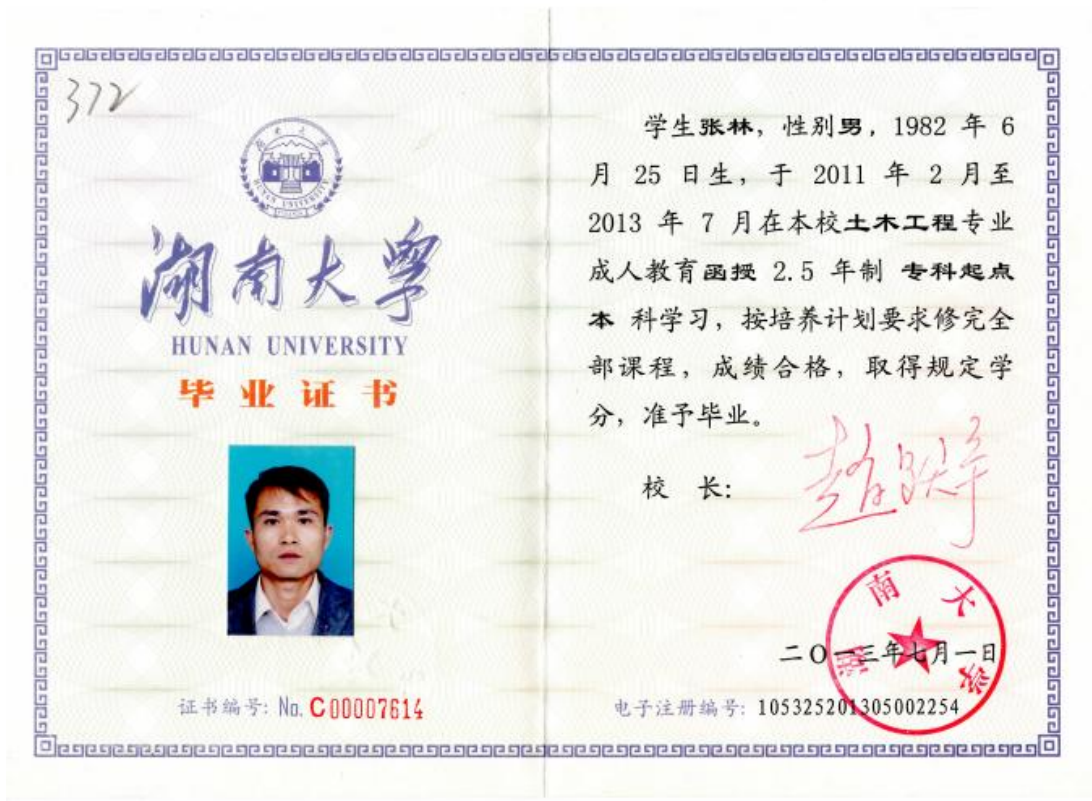 372
HUNAN UNIVERSITY
湖南大學
HUNAN UNIVERSITY
毕业证书
证书编号: No. C00007614
学生张林，性别男，1982 年 6
月 25 日生，于 2011 年 2 月至
2013 年 7 月在本校土木工程专业
成人教育函授 2.5 年制 专科起点
本 科学习，按培养计划要求修完全
部课程，成绩合格，取得规定学
分，准予毕业。
校 长:
赵跃宇
湖南大学
二〇一三年七月一日
电子注册编号: 105325201305002254